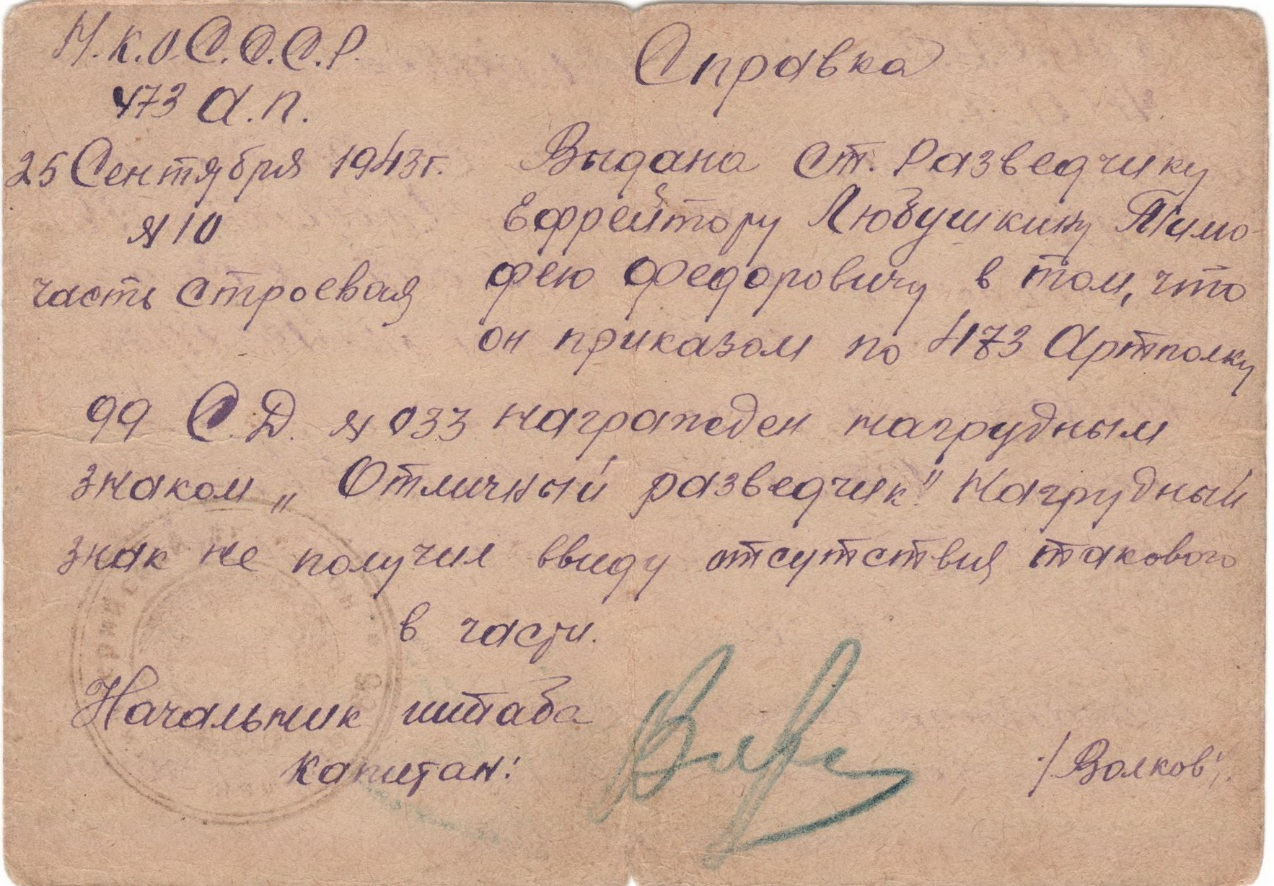 Н.К.О.С.С.С.Р.
473 А.П.
25 Сентября 1943г.
№ 10
часть строевая
Справка
Выдана ст. Разведчику
Ефрейтору Любушкину Тимо-
фею Федоровичу в том, что
он приказом по 473 Артполку
99 С.Д. № 033 награжден нагрудным
знаком „Отличный разведчик". Нагрудный
знак не получил ввиду отсутствия такового
в части.
Начальник штаба
капитан:
/Волков/.